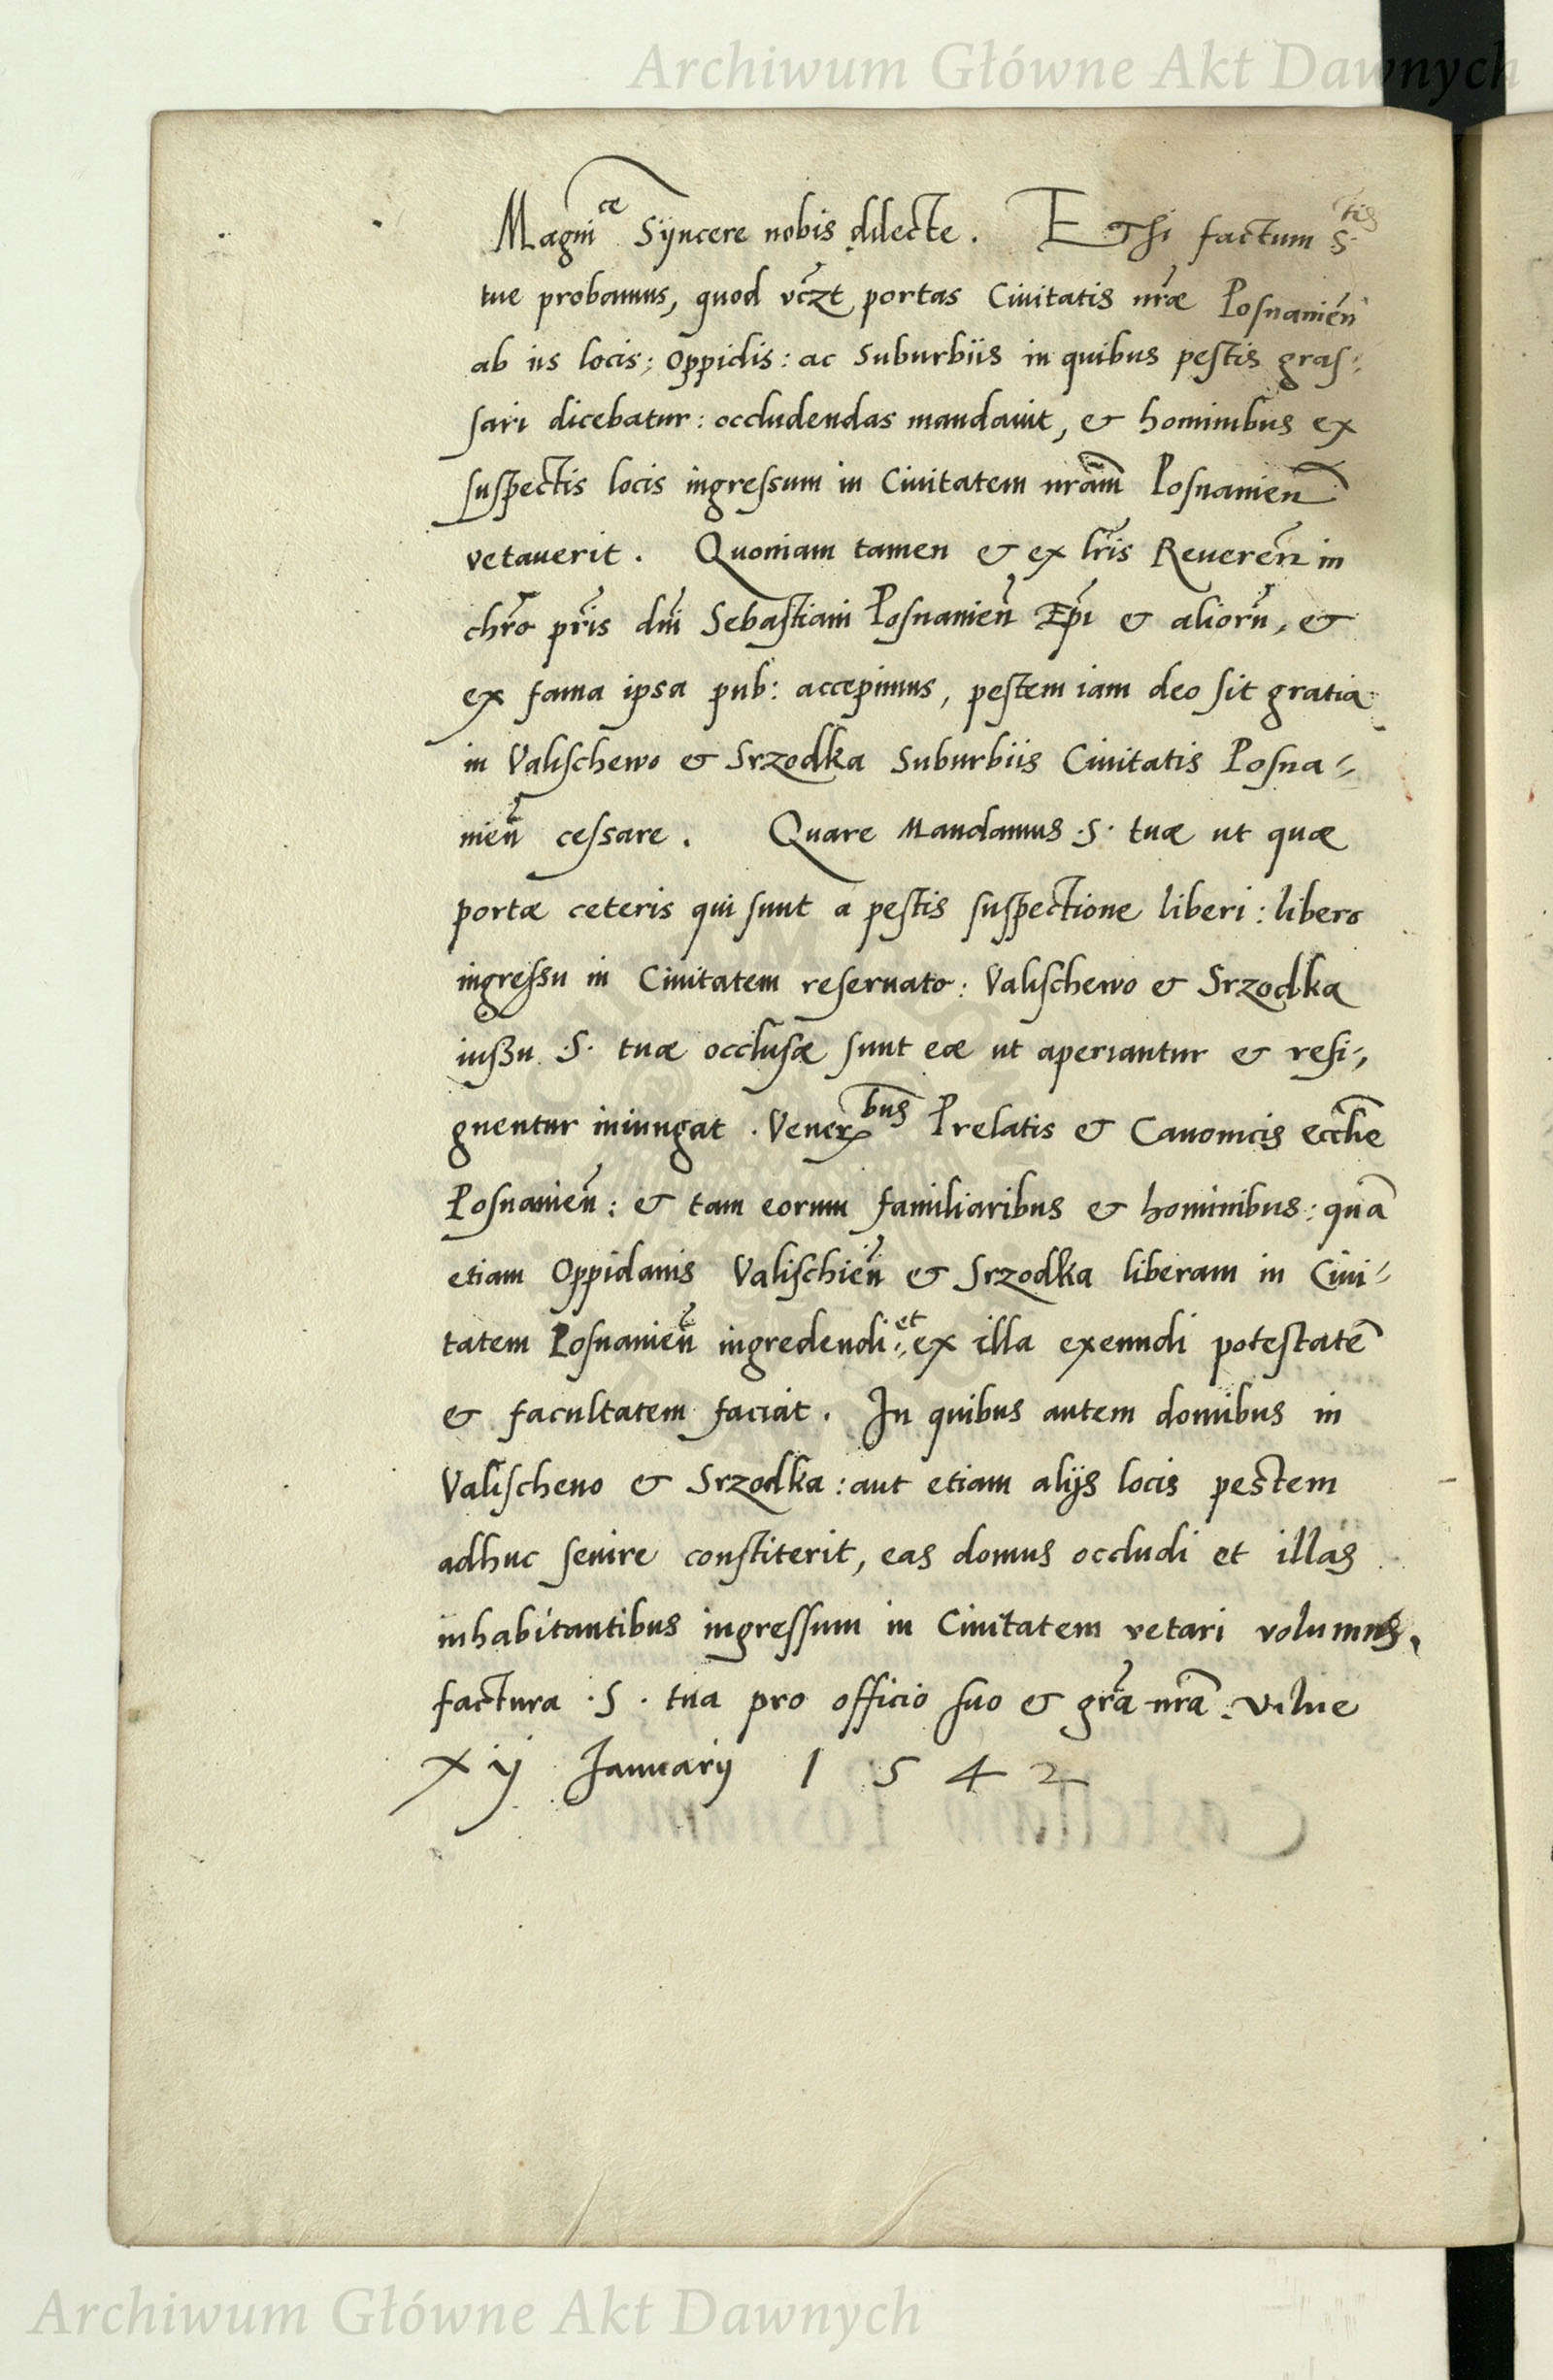 Archiwum Główne Akt Dawnych
Magni^ce Sÿncere nobis dilecte. Etsi factum S^tis
tue probamus, quod vc̃zt portas Ciuitatis nr̃æ Posnanien̄
ab iis locis; Oppidis: ac Suburbiis in quibus pestis gras⸗
sari dicebatur: occludendas mandauit, & hominibus ex
suspectis locis ingressum in Ciuitatem nrãm Posnanien̄
vetauerit. Quoniam tamen & ex lr̃is Reueren̄ in
chr̃o pr̃is dñi Sebastiani Posnanien̄ Ep̃i & aliorũ, &
ex fama ipsa pub: accepimus, pestem iam deo sit gratia
in Valischewo & Srzodka Suburbiis Ciuitatis Posna⸗
nien̄ cessare. Quare Mandamus .S. tuæ ut quæ
portæ ceteris qui sunt a pestis suspectione liberi: libero
ingressu in Ciuitatem reseruato: Valischewo & Srzodka
iussu .S. tuæ occlusæ sunt eæ ut aperiantur & resi⸗
gnentur iniungat. Vener^bus Prelatis & Canonicis eccl̃ie
Posnanien̄: & tam eorum familiaribus & hominibus: quã
etiam Oppidanis Valischien̄ & Srzodka liberam in Ciui⸗
tatem Posnanien̄ ingredendi et ex illa exeundi potestatẽ
& facultatem faciat. In quibus autem domibus in
Valischeno & Srzodka: aut etiam alijs locis pestem
adhuc seuire constiterit, eas domus occludi et illas
inhabitantibus ingressum in Ciuitatem vetari volumus,
factura .S. tua pro officio suo & gr̃a nr̃a. Vilne
Xij Januarij 1542
Archiwum Główne Akt Dawnych